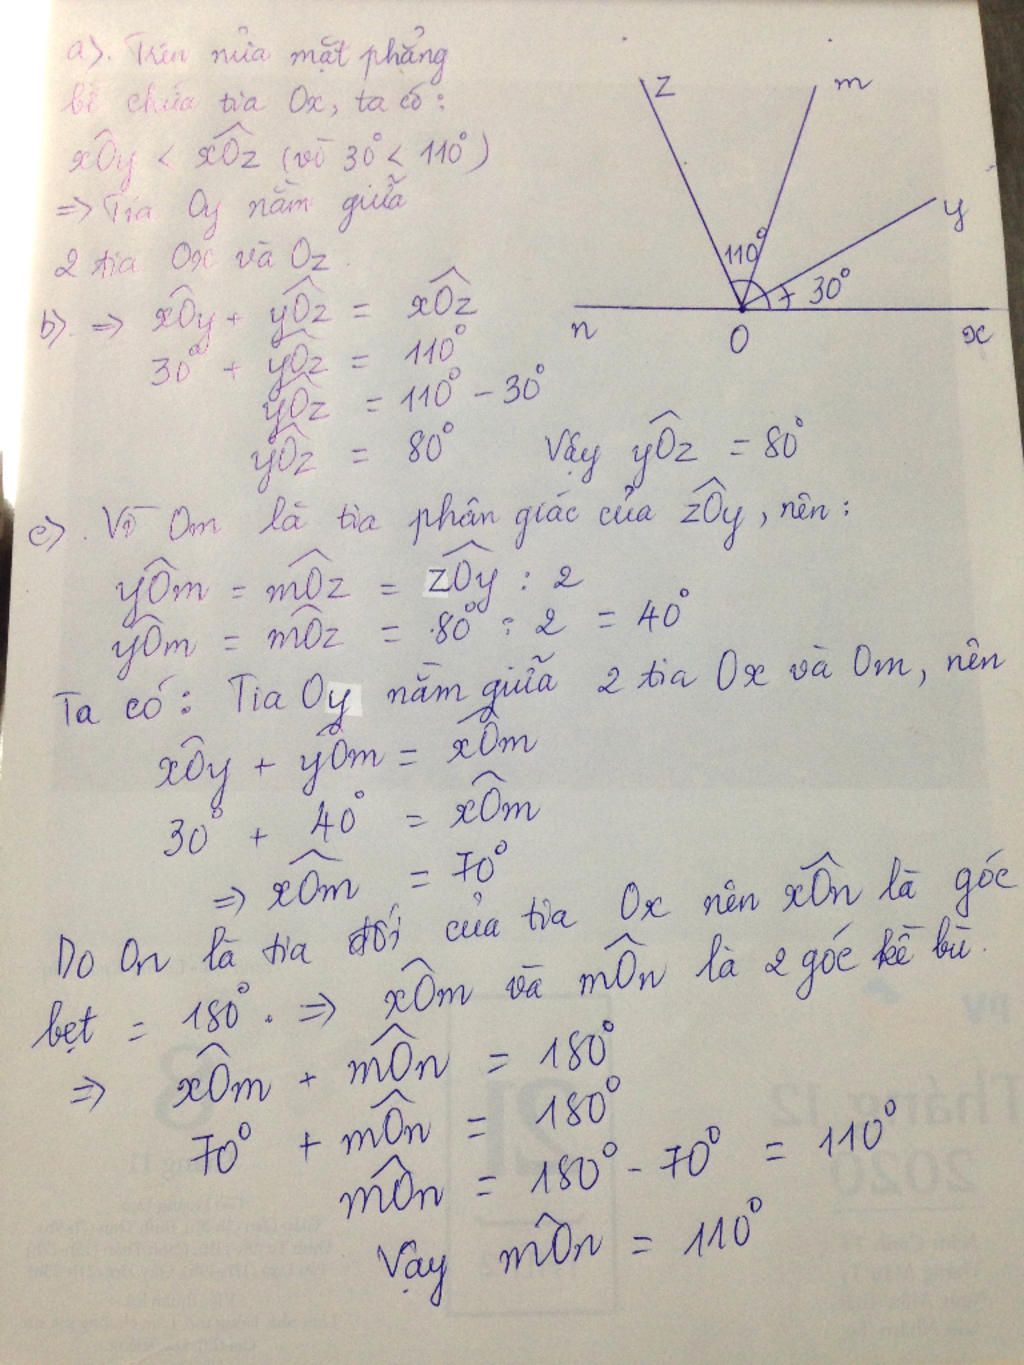 a). Trên nửa mặt phẳng
bề chứa tia Ox, ta có:
xÔy < xÔz (vì 30° < 110°)
=> Tia Oy nằm giữa
2 tia Ox và Oz.
z
m
y
110°
30°
n
O
x
b). => xÔy + yÔz = xÔz
30° + yÔz = 110°
yÔz = 110° - 30°
yÔz = 80° Vậy yÔz = 80°
c). Vì Om là tia phân giác của zÔy, nên:
yÔm = mÔz = zÔy : 2
yÔm = mÔz = 80° : 2 = 40°
Ta có: Tia Oy nằm giữa 2 tia Ox và Om, nên
xÔy + yÔm = xÔm
30° + 40° = xÔm
=> xÔm = 70°
Do On là tia đối của tia Ox nên xÔn là góc
bẹt = 180°. => xÔm và mÔn là 2 góc kề bù.
=> xÔm + mÔn = 180°
70° + mÔn = 180°
mÔn = 180° - 70° = 110°
Vậy mÔn = 110°
Tháng 12
2020